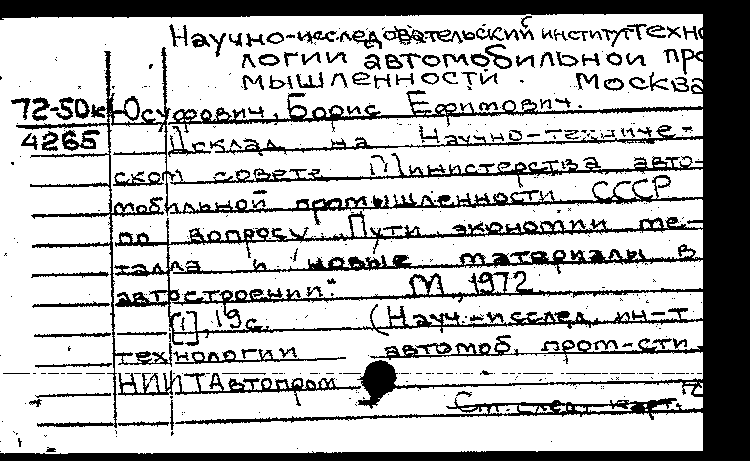 Научно-исследовательский институт техно
логии автомобильной про
мышленности. Москва
72-50к
4265
Осуфович, Борис Ефимович.
Доклад на Научно-техниче-
ском совете Министерства авто-
мобильной промышленности СССР
по вопросу „Пути экономии ме-
талла и новые материалы в
автостроении." М., 1972
[1], 19с. (Науч.-исслед. ин-т
технологии автомоб. пром-сти.
НИИТАвтопром
См. след. карт.